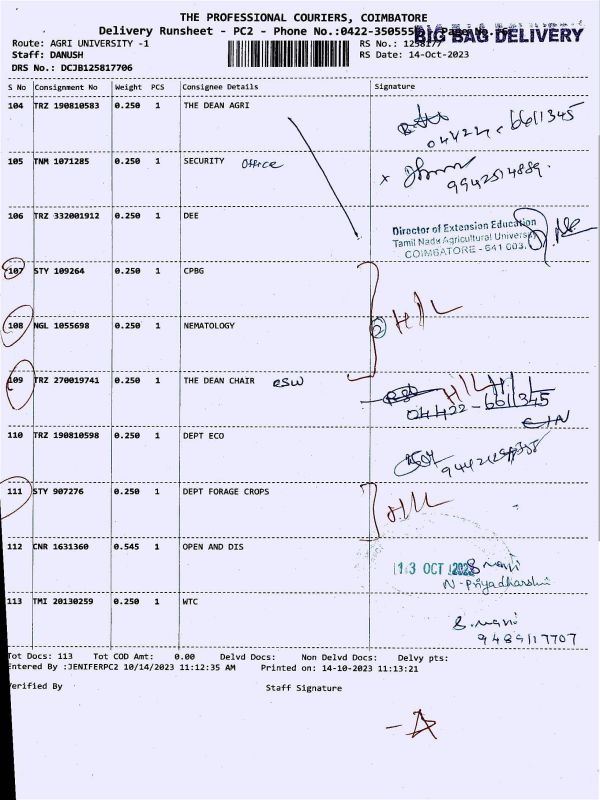 THE PROFESSIONAL COURIERS, COIMBATORE
Delivery Runsheet - PC2 - Phone No.:0422-350555
BIG BAG DELIVERY
Route: AGRI UNIVERSITY -1
RS No.: 1258177
Staff: DANUSH
RS Date: 14-Oct-2023
DRS No.: DCJB125817706
S No Consignment No Weight PCS Consignee Details Signature
104 TRZ 190810583 0.250 1 THE DEAN AGRI
105 TNM 1071285 0.250 1 SECURITY Office
106 TRZ 332001912 0.250 1 DEE
Director of Extension Education
Tamil Nadu Agricultural University
COIMBATORE - 641 003.
107 STY 109264 0.250 1 CPBG
108 NGL 1055698 0.250 1 NEMATOLOGY
H/L
109 TRZ 270019741 0.250 1 THE DEAN CHAIR CSW
H/L H/L
04422-6611345
110 TRZ 190810598 0.250 1 DEPT ECO
111 STY 907276 0.250 1 DEPT FORAGE CROPS
H/L
112 CNR 1631360 0.545 1 OPEN AND DIS
13 OCT 2023
N-Priyadharshini
113 TMI 20130259 0.250 1 WTC
S.mani
9489117707
Tot Docs: 113 Tot COD Amt: 0.00 Delvd Docs: Non Delvd Docs: Delvy pts:
Entered By :JENIFERPC2 10/14/2023 11:12:35 AM Printed on: 14-10-2023 11:13:21
Verified By Staff Signature